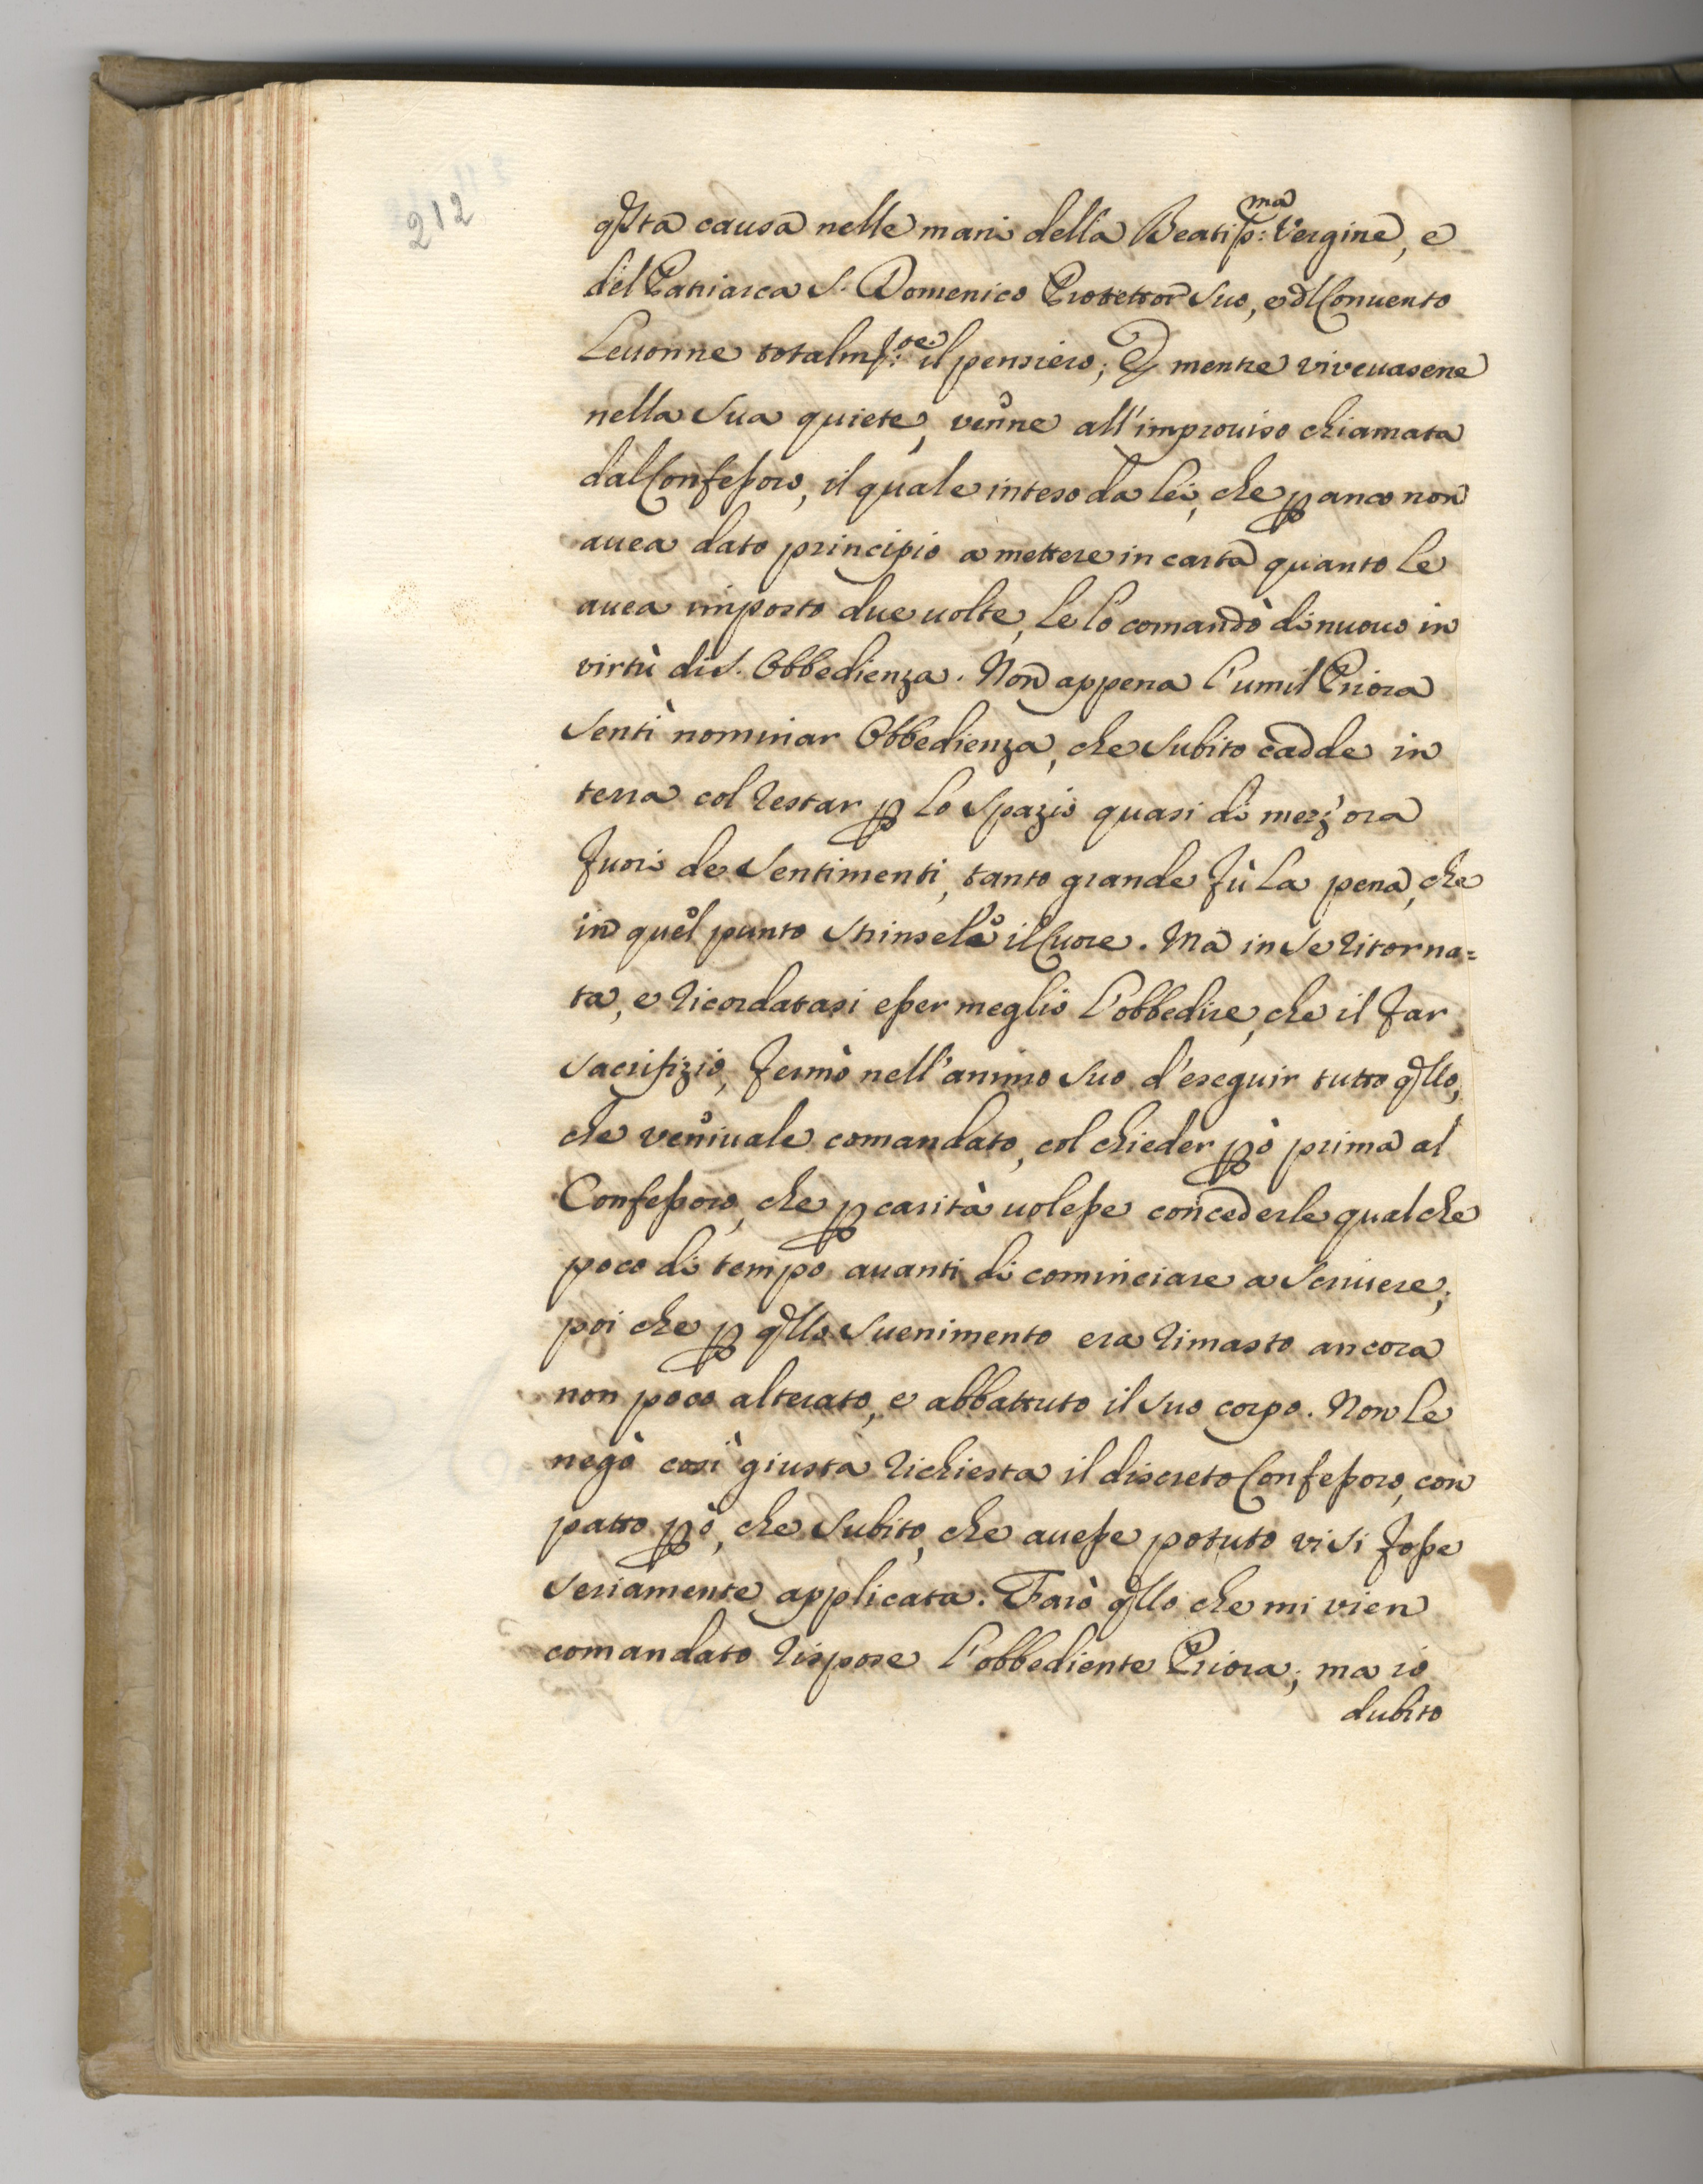 212
qsta causa nelle mani della Beatiss:ma Vergine, e
del Patriarca S. Domenico Protettor suo, e dl Convento
Levonne totalmte: il pensiero; E mentre vivevasene
nella sua quiete, venne all'improviso chiamata
dal Confessoro, il quale inteso da lei, che p anco non
avea dato principio a mettere in carta quanto le
avea imposto due volte, le lo comandò di nuovo in
virtù di S. Obbedienza. Non appena l'umil Priora
sentì nominar Obbedienza, che subito cadde in
terra col restar p lo spazio quasi di mezz'ora
fuori de sentimenti, tanto grande fù la pena, che
in quel punto strinsele il Cuore. Ma in se ritorna=
ta, e ricordatasi esser meglio l'obbedire, che il far
sacrifizio, fermò nell'animo suo d'eseguir tutto qllo,
che venivale comandato, col chieder pò prima al
Confessoro, che p carità volesse concederle qualche
poco di tempo avanti di cominciare a scrivere;
poi che p qllo svenimento era rimasto ancora
non poco alterato, e abbattuto il suo corpo. Non le
negò così giusta richiesta il discreto Confessoro, con
patto pò, che subito, che avesse potuto vi si fosse
seriamente applicata. Farò qllo che mi vien
comandato rispose l'obbediente Priora; ma io
dubito